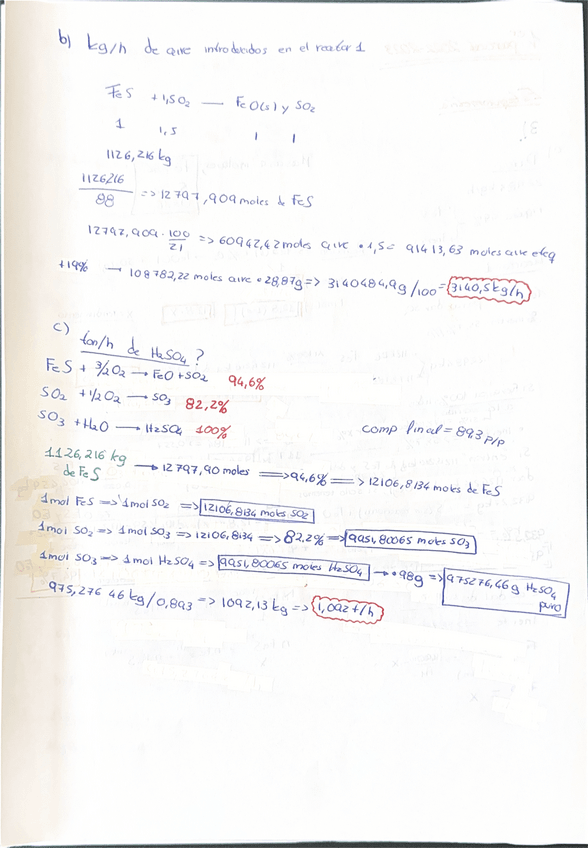 b) kg/h de aire introducidos en el reactor 1
FeS + 1,5O2 — FeO(s) y SO2
1 1,5 1 1
1126,216 kg
1126216/88 => 12797,909 moles de FeS
12797,909 · 100/21 => 60942,42 moles aire · 1,5 = 91413,63 moles aire eteq
+19% → 108782,22 moles aire · 28,87g => 3140484,9g/100 = 3140,5 kg/h
c) ton/h de H2SO4?
FeS + 3/2O2 → FeO + SO2 94,6%
SO2 + 1/2O2 → SO3 82,2%
SO3 + H2O → H2SO4 100%
comp final = 893 p/p
1126,216 kg de FeS → 12797,90 moles => 94,6% => 12106,8134 moles de FeS
1mol FeS => 1mol SO2 => 12106,8134 moles SO2
1mol SO2 => 1mol SO3 => 12106,8134 => 82.2% => 9951,80065 moles SO3
1mol SO3 => 1mol H2SO4 => 9951,80065 moles H2SO4 → · 98g => 975276,46 g H2SO4 puro
975,276 46 kg/0,893 => 1092,13 kg => 1,092 t/h